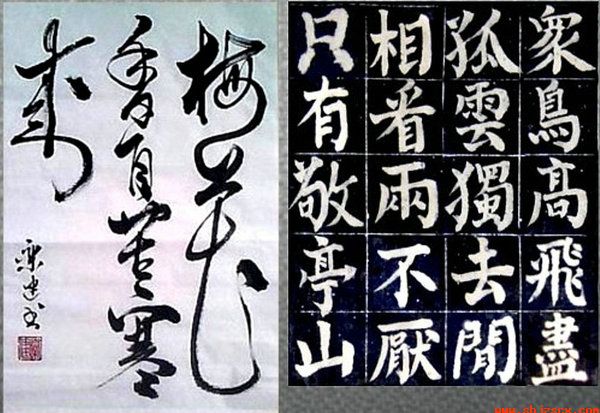 梅花
香自苦寒
来
衆鳥髙飛盡
孤雲獨去閒
相看兩不厭
只有敬亭山